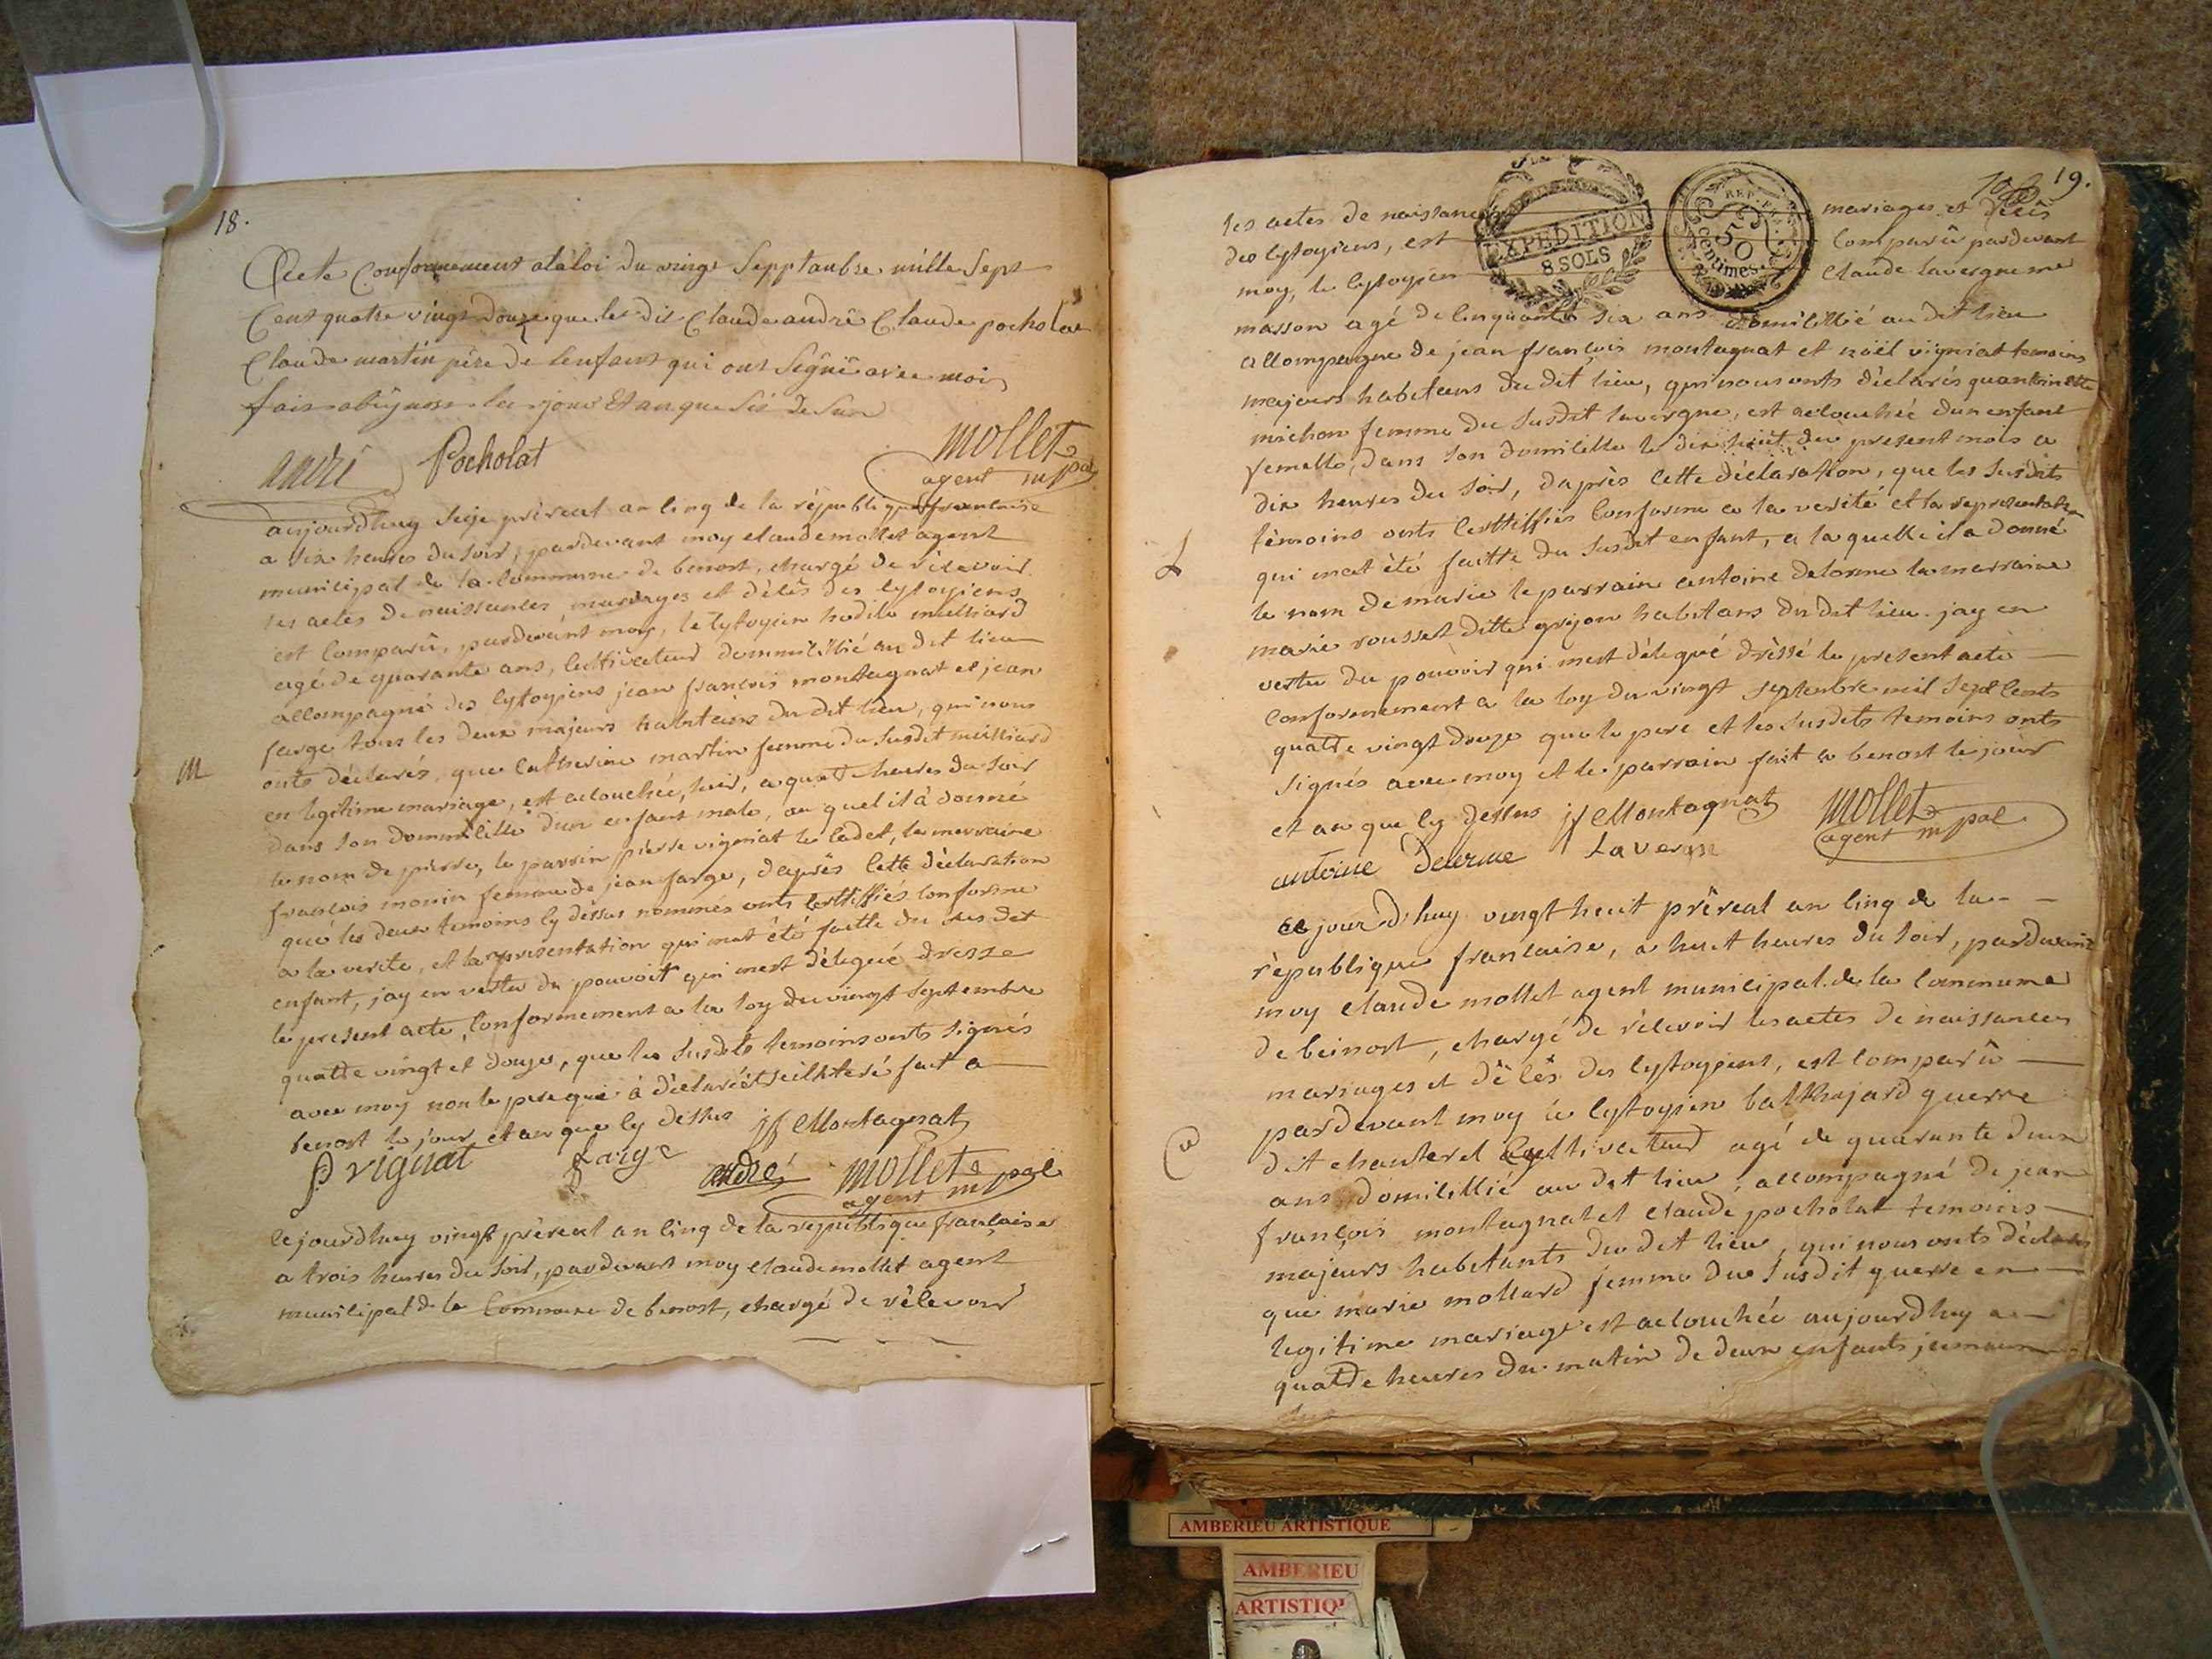 18.
Acte Conformement ala loi du vingt Sepptanbre mille Sept
Cent quatre vingt douze que les dit Claude andré Claude pocholat
Claude martin père de Lenfant qui ont Signé avec moi
fait abeynost les jour Et an que desus
andré Pocholat mollet
agent mpal
aujourdhuy seije prèreal an cinq de la république francaise
a six heures du soir, pardevant moy claude mollet agent
municipal de la commune de benost, chargé de récevoir
les actes de naissances mariages et décès des cytoyiens
est comparû, pardevant moy, le cytoyien hodile milliard
agé de quarante ans, cultivateur dommicillié au dit lieu
accompagné des cytoyiens jean francois montagnat et jean
farge tous les deux majeurs habitans du dit lieu, qui nous
onts déclarés, que catherine martin femme du susdit milliard
m
en legitime mariage, est acouchée, hier, a quatre heures du soir
dans son dommicille d'un enfant male, au quel il à donné
le nom de pierre, le parrin pierre vigniat le cadet, la marraine
francois monin femme de jean farge, daprès cette déclaration
que les deux temoins cy dessus nommés onts certiffiés conforme
a la verite, et la présentation qui mat été faitte du sus dit
enfant, jay en vertu du pouvoir qui mest délégué dresse
le present acte, conformement a la loy du vingt septembre
quatre vingt et douze, que les susdits temoins onts signés
avec moy non le pere qui à déclaré être illiteré fait a
benost le jour et an que cy dessus jf Montagnat
P vignat farge andré mollet
agent mpal
cejourdhuy vingt prèreal an cinq de la republique française
a trois heures du soir, pardevant moy claude mollet agent
municipal de la Commune de benost, chargé de récevoir
19.
les actes de naissances mariages et décès
des cytoyiens, est comparû pardevant
moy, le cytoyien Claude lavergne me
EXPEDITION
8 SOLS
REP. FRA.
50
Centimes
masson agé de cinquante six ans domicillié au dit lieu
accompagne de jean françois montagnat et noël vigniat temoins
majeurs habitans du dit lieu, qui nous onts déclarés quantoinette
michon femme du susdit lavergne, est acouchée dun enfant
femelle, dans son domicille le dix huit du present mois a
dix heures du soir, daprès cette déclaration, que les susdits
témoins onts certtiffiés conforme a la verité et la representation
L
qui mat été faitte du susdit enfant, a la quelle il a donné
le nom de marie le parrain antoine delorme la marraine
marie rousset ditte grijon habitans du dit lieu. jay en
vertu du pouvoir qui mest délégué dréssé le present acte
conformement a la loy du vingt septembre mil sept cents
quatre vingt douze que le pere et les susdits temoins onts
signés avec moy et le parrain fait a benost le jour
et an que cy dessus jf Montagnat mollet
agent mpal
antoine Delorme Lavergn
cejourd'huy vingt huit prèreal an cinq de la
république francaise, a huit heures du soir, pardevant
moy claude mollet agent municipal de la commune
de beinost, chargé de récevoir les actes de naissances
mariages et décès des cytoyiens, est comparû
pardevant moy le cytoyien balthajard guerre
dit chanterel cultivateur agé de quarante deux
ans domicillié au dit lieu, accompagné de jean
françois montagnat et claude pocholat temoins
majeurs habitants du dit lieu, qui nous onts déclarés
que marie mollard femme du susdit guerre en
legitime mariage est acouchée aujourdhuy a
quattre heures du matin de deux enfants jumeaux
AMBERIEU ARTISTIQUE
AMBERIEU
ARTISTIQ